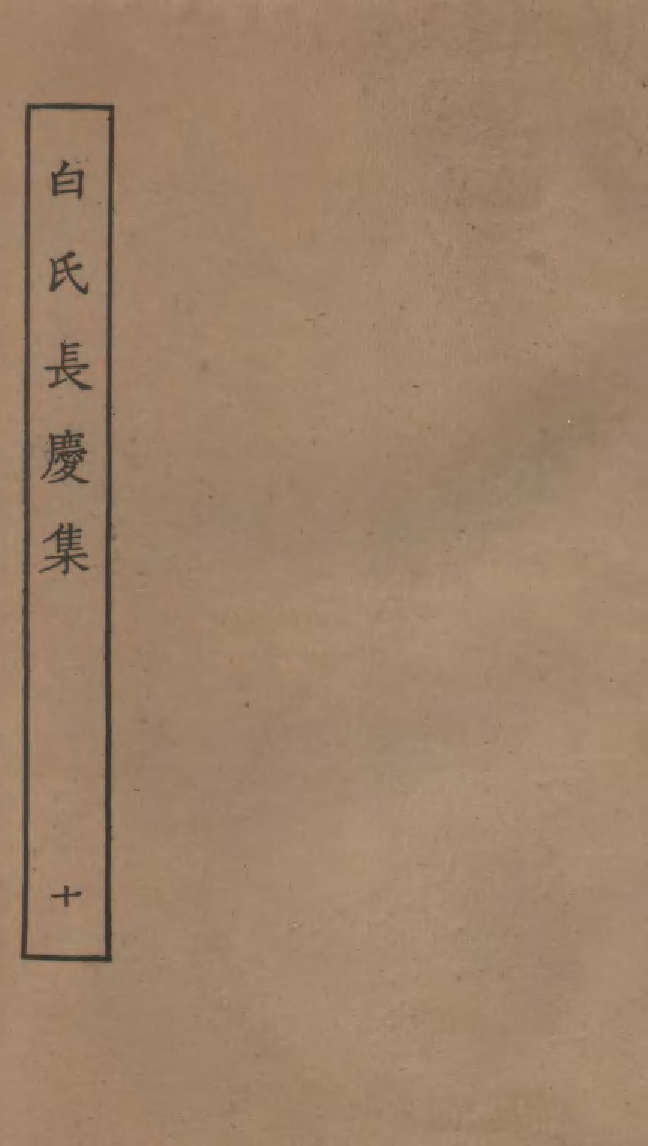 白氏長慶集 十